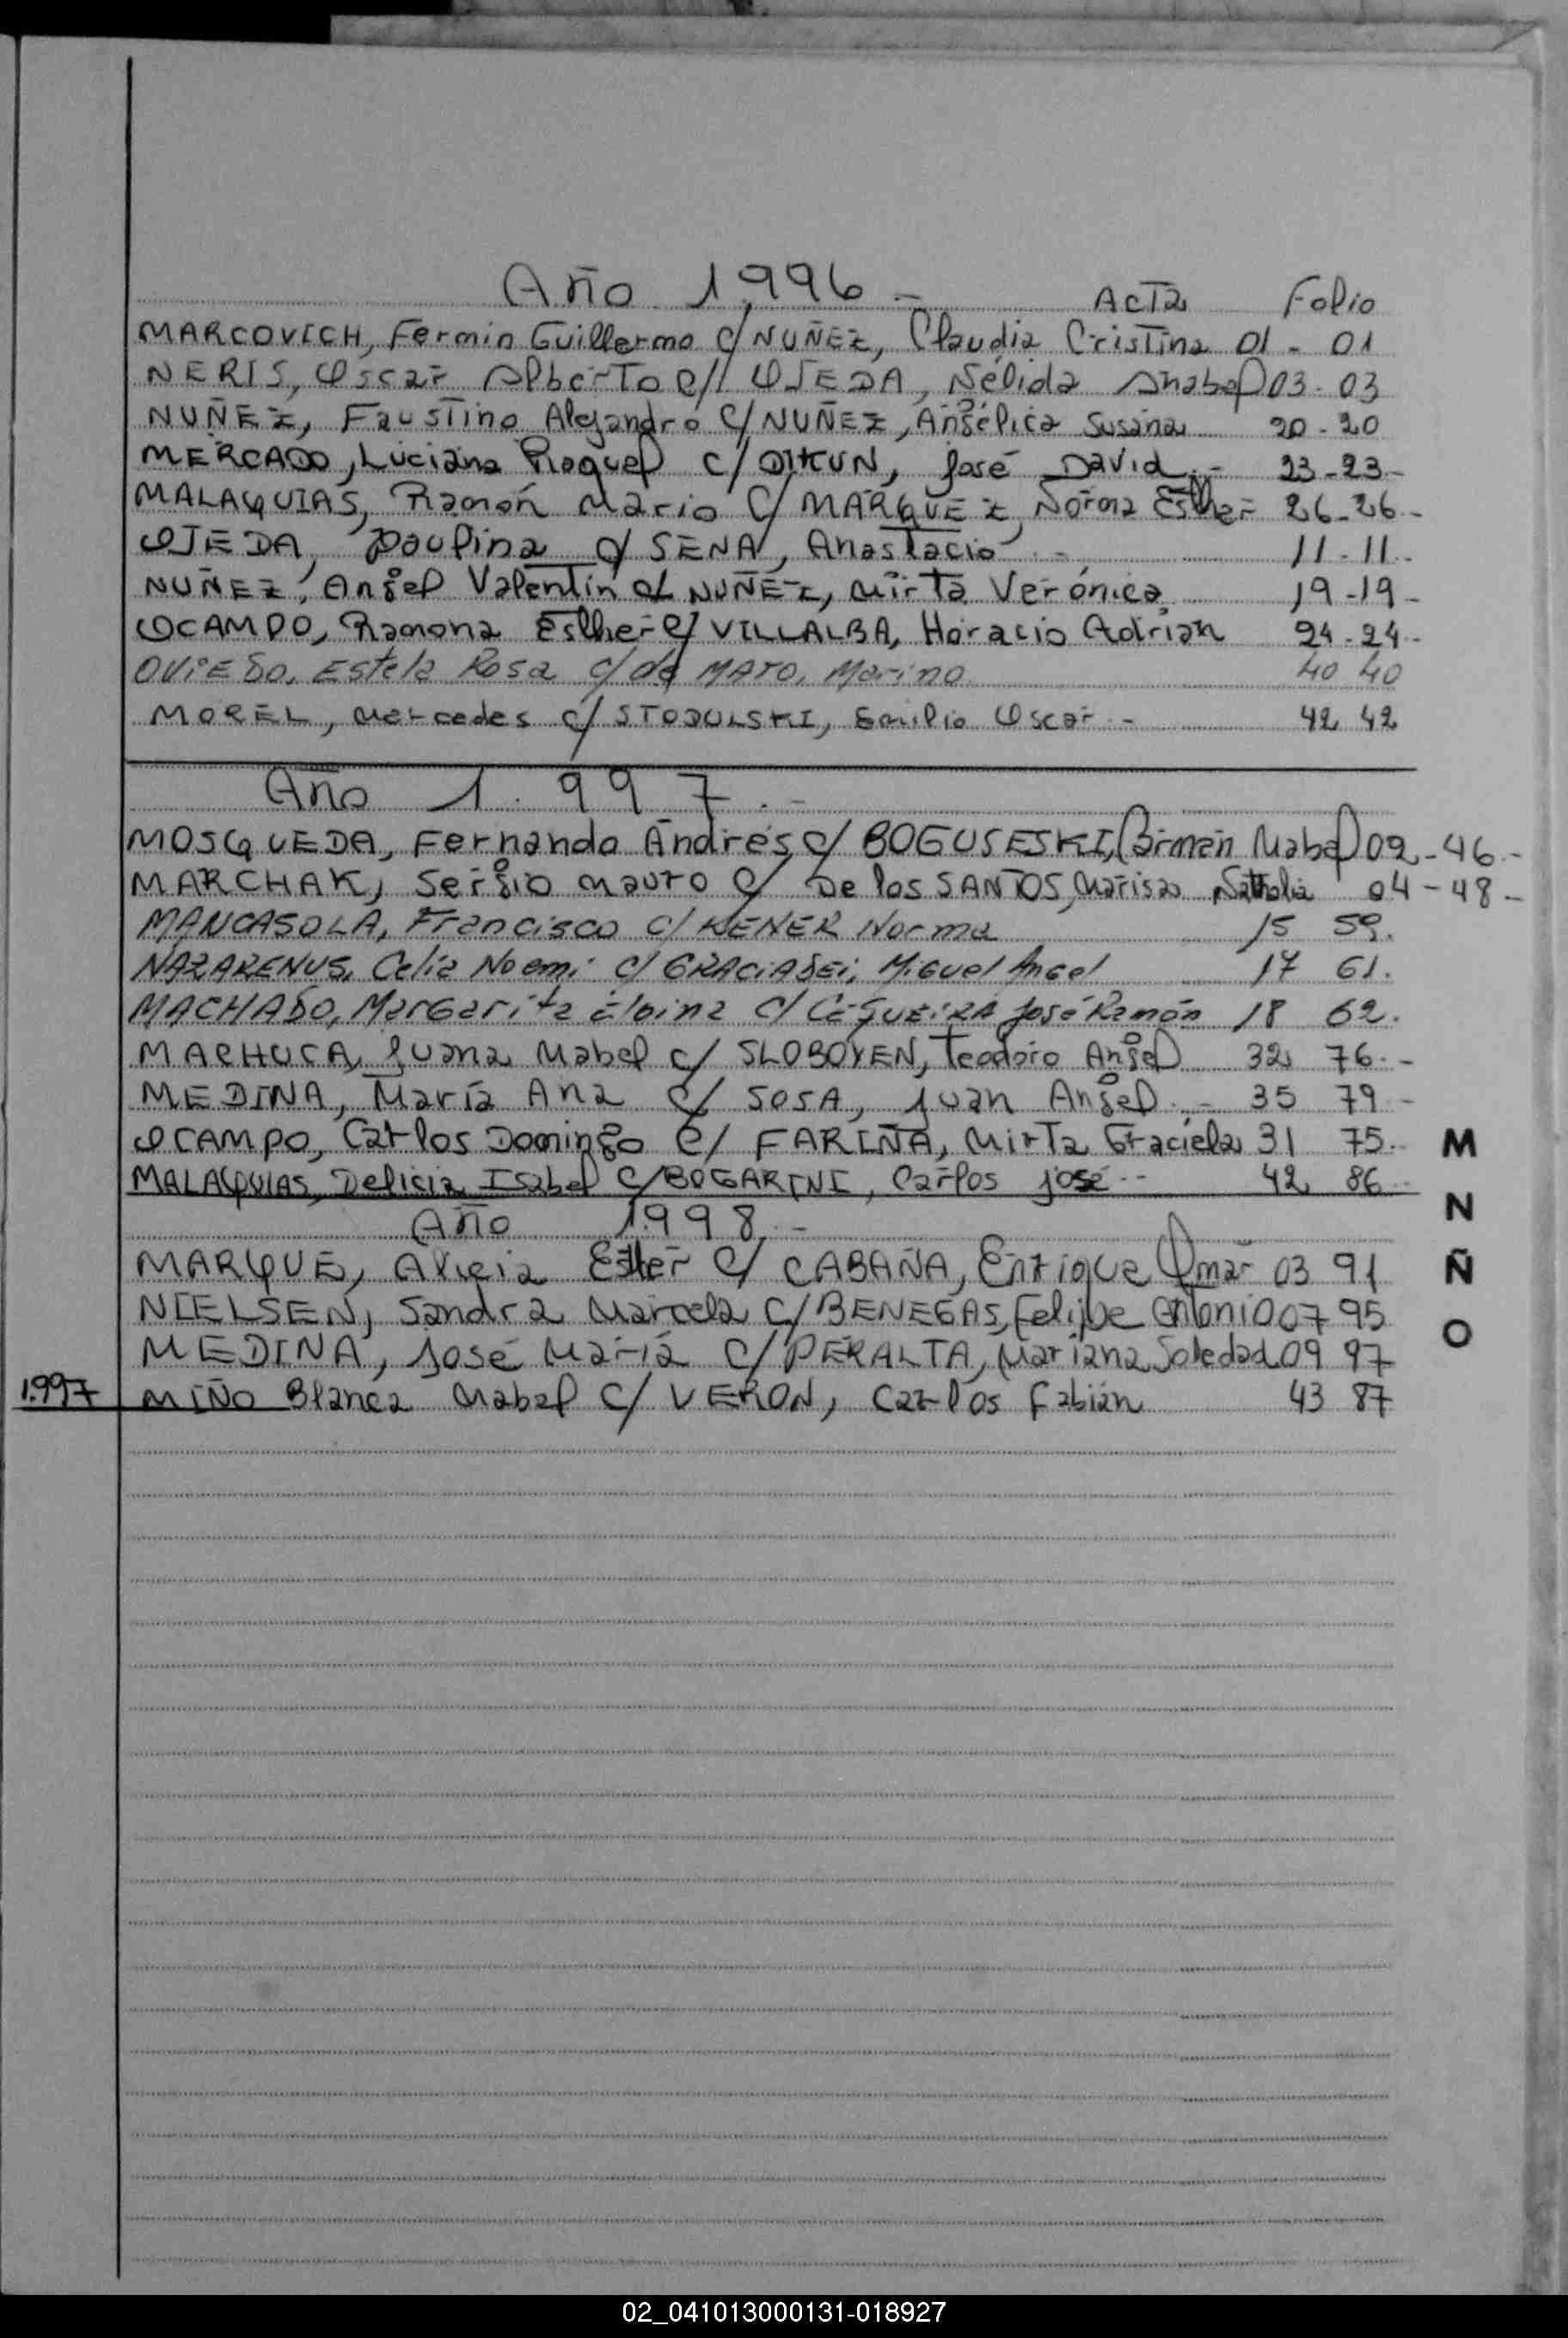 Año 1.996 - Acta Folio
MARCOVICH, Fermin Guillermo c/ NUÑEZ, Claudia Cristina 01 - 01
NERIS, Oscar Alberto c// OJEDA, Nélida Anabel 03 - 03
NUÑEZ, Faustino Alejandro c/ NUÑEZ, Angélica Susana 20 - 20
MERCADO, Luciana Raquel c/ DIKUN, José David.- 23 - 23 -
MALAQUIAS, Ramón Mario c/ MARQUEZ, Norma Esther 26 - 26 -
OJEDA, Paulina c/ SENA, Anastacio . - 11 - 11 -
NUÑEZ, Angel Valentín c/ NUÑEZ, Mirta Verónica 19 - 19 -
OCAMPO, Ramona Esther c/ VILLALBA, Horacio Adrian 24 - 24 -
OViEDO, Estela Rosa c/ de MATO, Marino 40 40
MOREL, Mercedes c/ STODULSKI, Emilio Oscar - 42 42
Año 1.997.-
MOSQUEDA, Fernando Andrés c/ BOGUSESKI, Carmen Mabel 02 - 46 -
MARCHAK, Sergio Mauro c/ De los SANTOS, Marisa Nathalia 04 - 48 -
MANCASOLA, Francisco c/ KENER Norma 15 59.
NAZARENUS, Celia Noemi c/ GRACiADEi, Miguel Angel 17 61.
MACHADO, Margarita Elvina c/ CEQUEiRA José Ramón 18 62.
MACHUCA, Juana Mabel c/ SLOBOYEN, Teodoro Angel 32 76 -
MEDINA, María Ana c/ SOSA, Juan Angel .- 35 79 -
OCAMPO, Carlos Domingo c/ FARIÑA, Mirta Graciela 31 75.
MALAQUIAS, Delicia Isabel c/ BOGARINI, Carlos José - 42 86
Año 1.998.-
MARQUE, Alicia Ester c/ CABAÑA, Enrique Omar 03 91
NIELSEN, Sandra Marcela c/ BENEGAS, Felipe Antonio 07 95
MEDINA, José María c/ PERALTA, Mariana Soledad 09 97
1.997 MIÑO Blanca Mabel c/ VERON, Carlos Fabián 43 87
M
N
Ñ
O
02_041013000131-018927